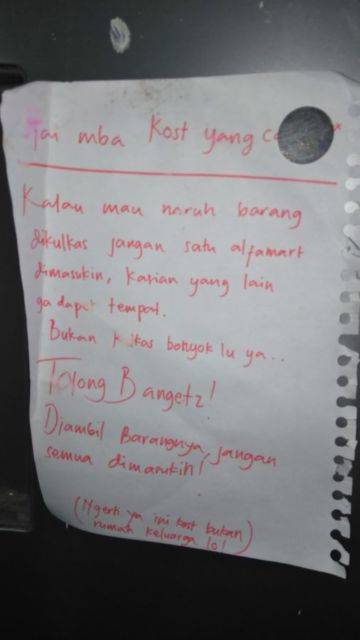 Tai mba kost yang
Kalau mau naruh barang
dikulkas jangan satu alfamart
dimasukin, karian yang lain
ga dapet tempat.
Bukan kulkas bokyok lu ya..
Tolong Bangetz!
Diambil Barangnya, jangan
semua dimasukin!
(Ngerti ya ini kost bukan
rumah keluarga lo!)